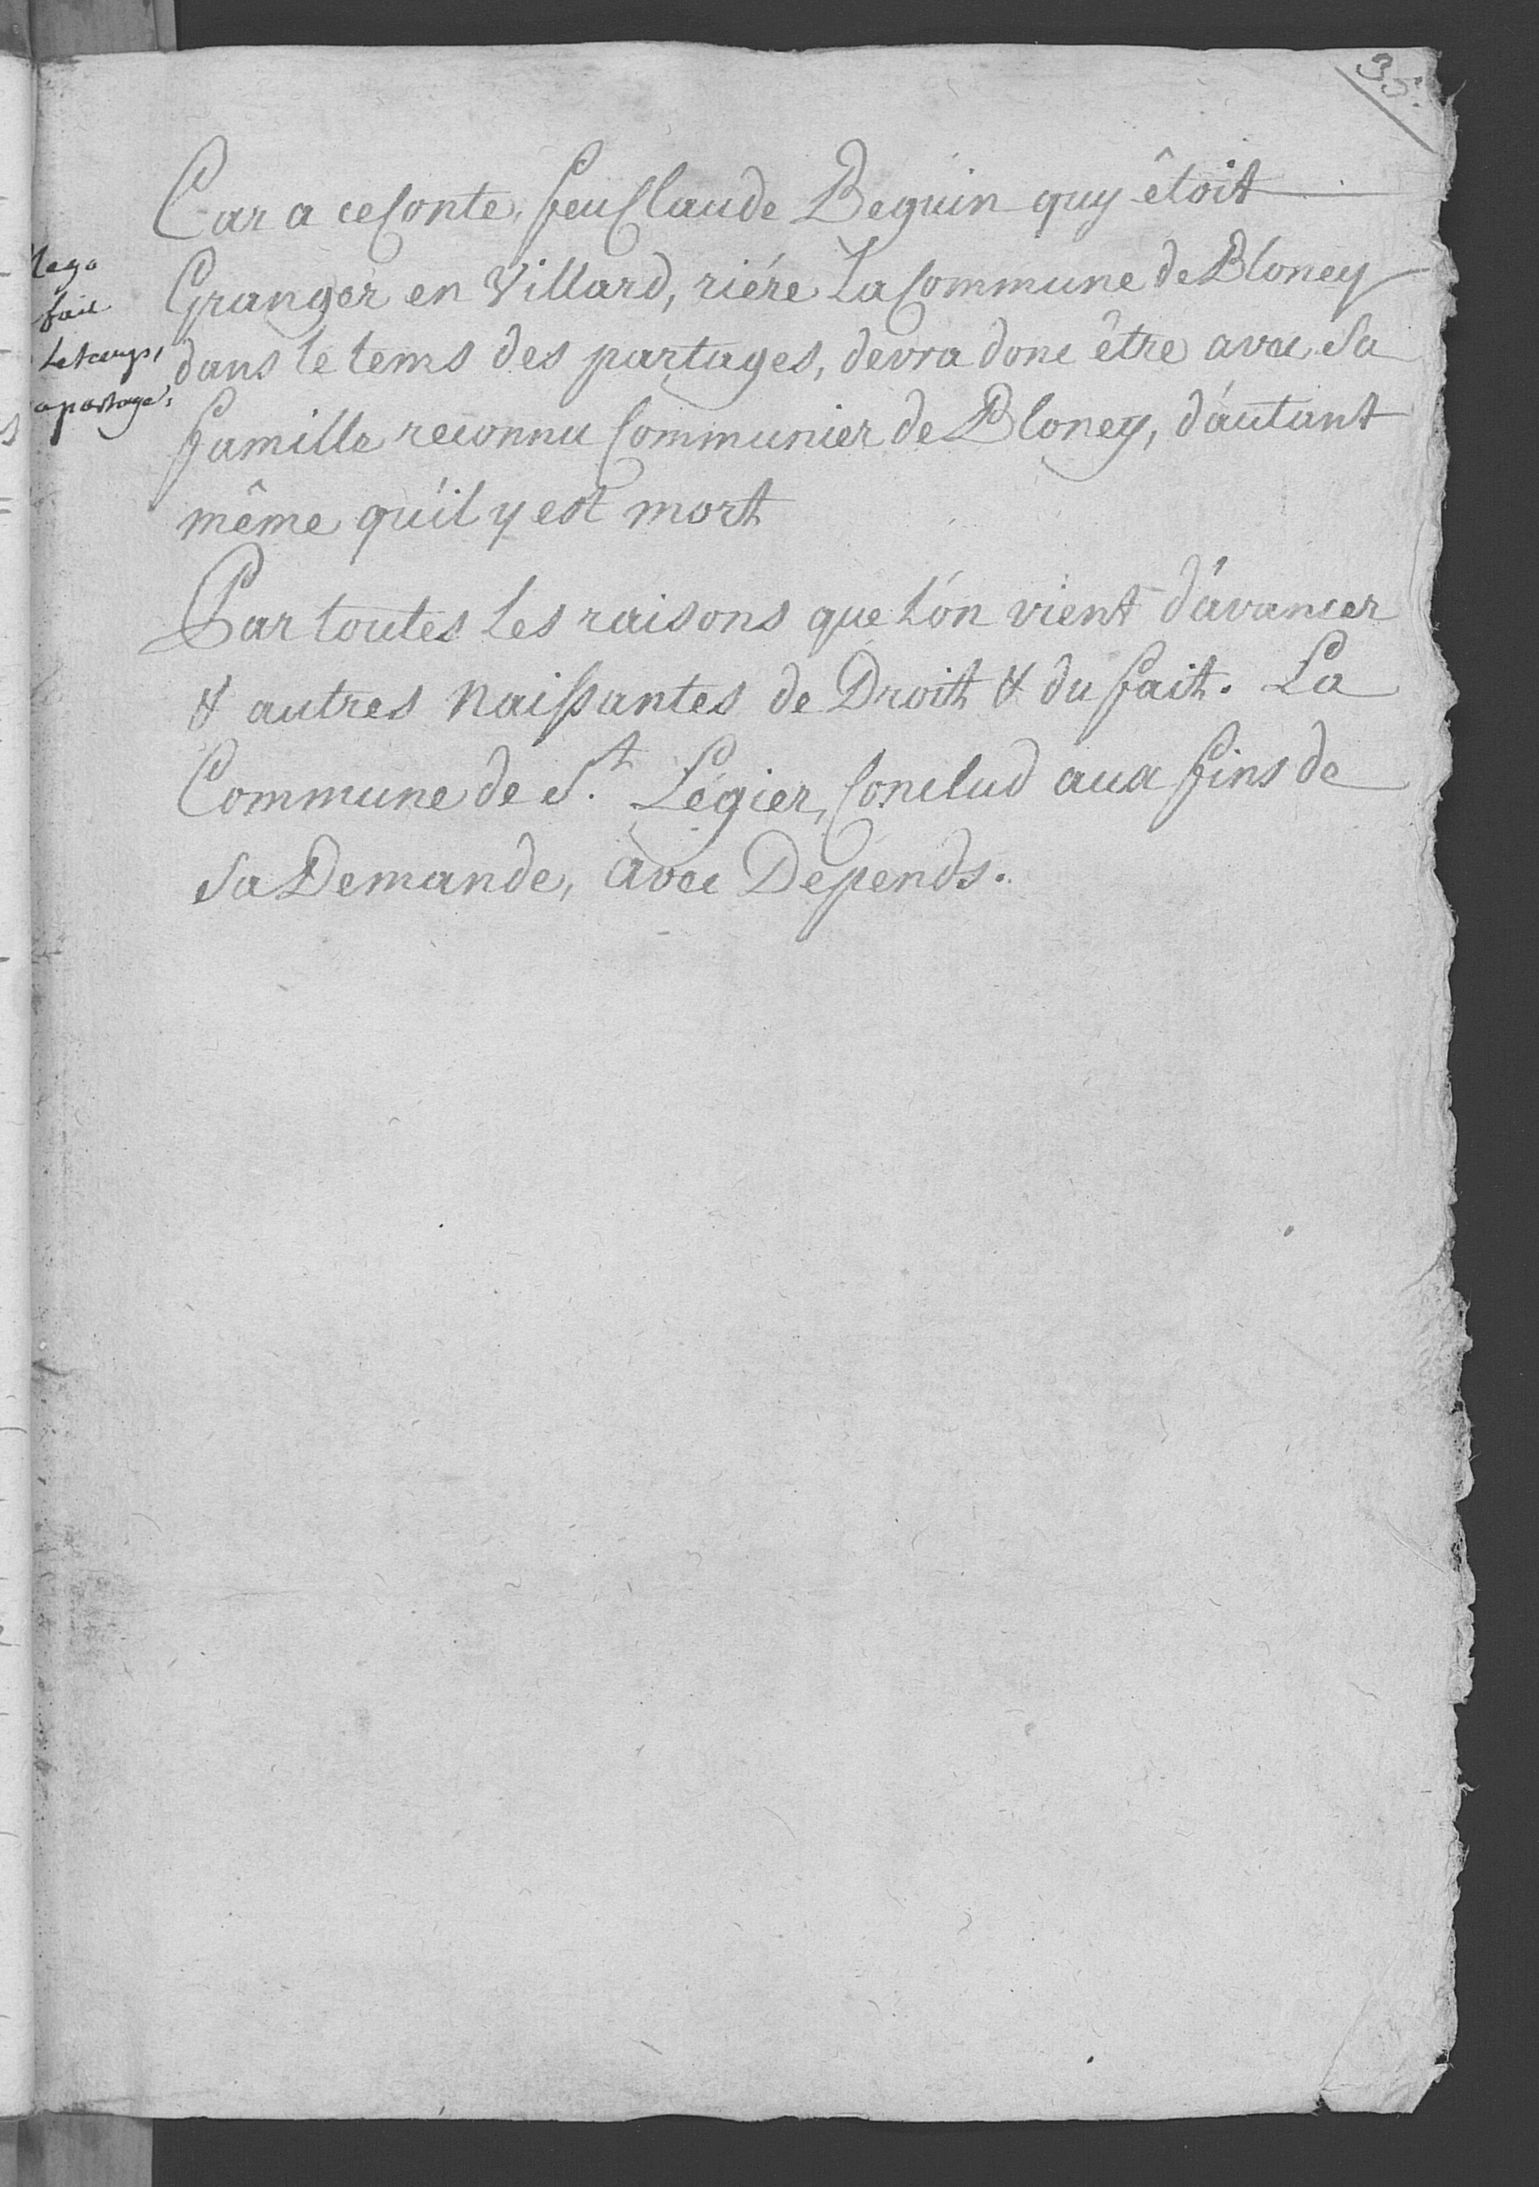 35.
Car a ce Conte, feu Claude Beguin quy êtoit
Granger en Villard, riére La Commune de Bloney
dans le tems des partages, devra donc être avec Sa
famille reconnu Communier de Bloney, d'autant
même qu'il y est mort
Par toutes les raisons que l'on vient d'avancer
& autres Naissantes de Droit & du fait. La
Commune de St. Légier, Conclud aux fins de
Sa Demande, avec Depends.
fait
partage